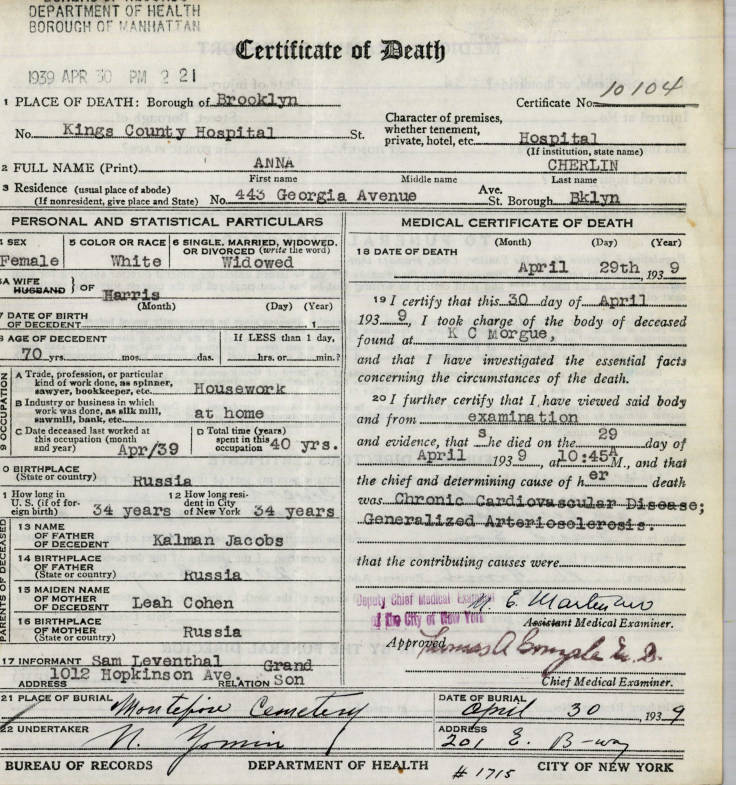 DEPARTMENT OF HEALTH
BOROUGH OF MANHATTAN
Certificate of Death
1939 APR 30 PM 2 21
10104
1 PLACE OF DEATH: Borough of Brooklyn Certificate No.
No. Kings County Hospital St.
Character of premises, whether tenement, private, hotel, etc. Hospital
(If institution, state name)
2 FULL NAME (Print) ANNA CHERLIN
First name Middle name Last name
3 Residence (usual place of abode) (If nonresident, give place and State) No. 443 Georgia Avenue Ave. St. Borough Bklyn
PERSONAL AND STATISTICAL PARTICULARS
SEX Female
5 COLOR OR RACE White
6 SINGLE, MARRIED, WIDOWED, OR DIVORCED (write the word) Widowed
WIFE HUSBAND } OF Harris
(Month) (Day) (Year)
DATE OF BIRTH OF DECEDENT 1
AGE OF DECEDENT 70 yrs. mos. das.
If LESS than 1 day, hrs. or min.?
OCCUPATION
A Trade, profession, or particular kind of work done, as spinner, sawyer, bookkeeper, etc. Housework
B Industry or business in which work was done, as silk mill, sawmill, bank, etc. at home
C Date deceased last worked at this occupation (month and year) Apr/39
D Total time (years) spent in this occupation 40 yrs.
0 BIRTHPLACE (State or country) Russia
1 How long in U. S. (if of foreign birth) 34 years
12 How long resident in City of New York 34 years
PARENTS OF DECEASED
13 NAME OF FATHER OF DECEDENT Kalman Jacobs
14 BIRTHPLACE OF FATHER (State or country) Russia
15 MAIDEN NAME OF MOTHER OF DECEDENT Leah Cohen
16 BIRTHPLACE OF MOTHER (State or country) Russia
17 INFORMANT Sam Leventhal Grand
ADDRESS 1012 Hopkinson Ave. RELATION Son
MEDICAL CERTIFICATE OF DEATH
18 DATE OF DEATH (Month) (Day) (Year)
April 29th, 1939
19 I certify that this 30 day of April
1939, I took charge of the body of deceased
found at K C Morgue,
and that I have investigated the essential facts
concerning the circumstances of the death.
20 I further certify that I have viewed said body
and from examination
and evidence, that she died on the 29 day of
April 1939, at 10:45A M., and that
the chief and determining cause of her death
was Chronic Cardiovascular Disease;
Generalized Arteriosclerosis.
that the contributing causes were
Deputy Chief Medical Examiner
of the City of New York
Assistant Medical Examiner.
Approved
Chief Medical Examiner.
21 PLACE OF BURIAL Montefiore Cemetery
DATE OF BURIAL April 30 1939
22 UNDERTAKER N. Yomin
ADDRESS 201 E. B-way
BUREAU OF RECORDS DEPARTMENT OF HEALTH # 1715 CITY OF NEW YORK